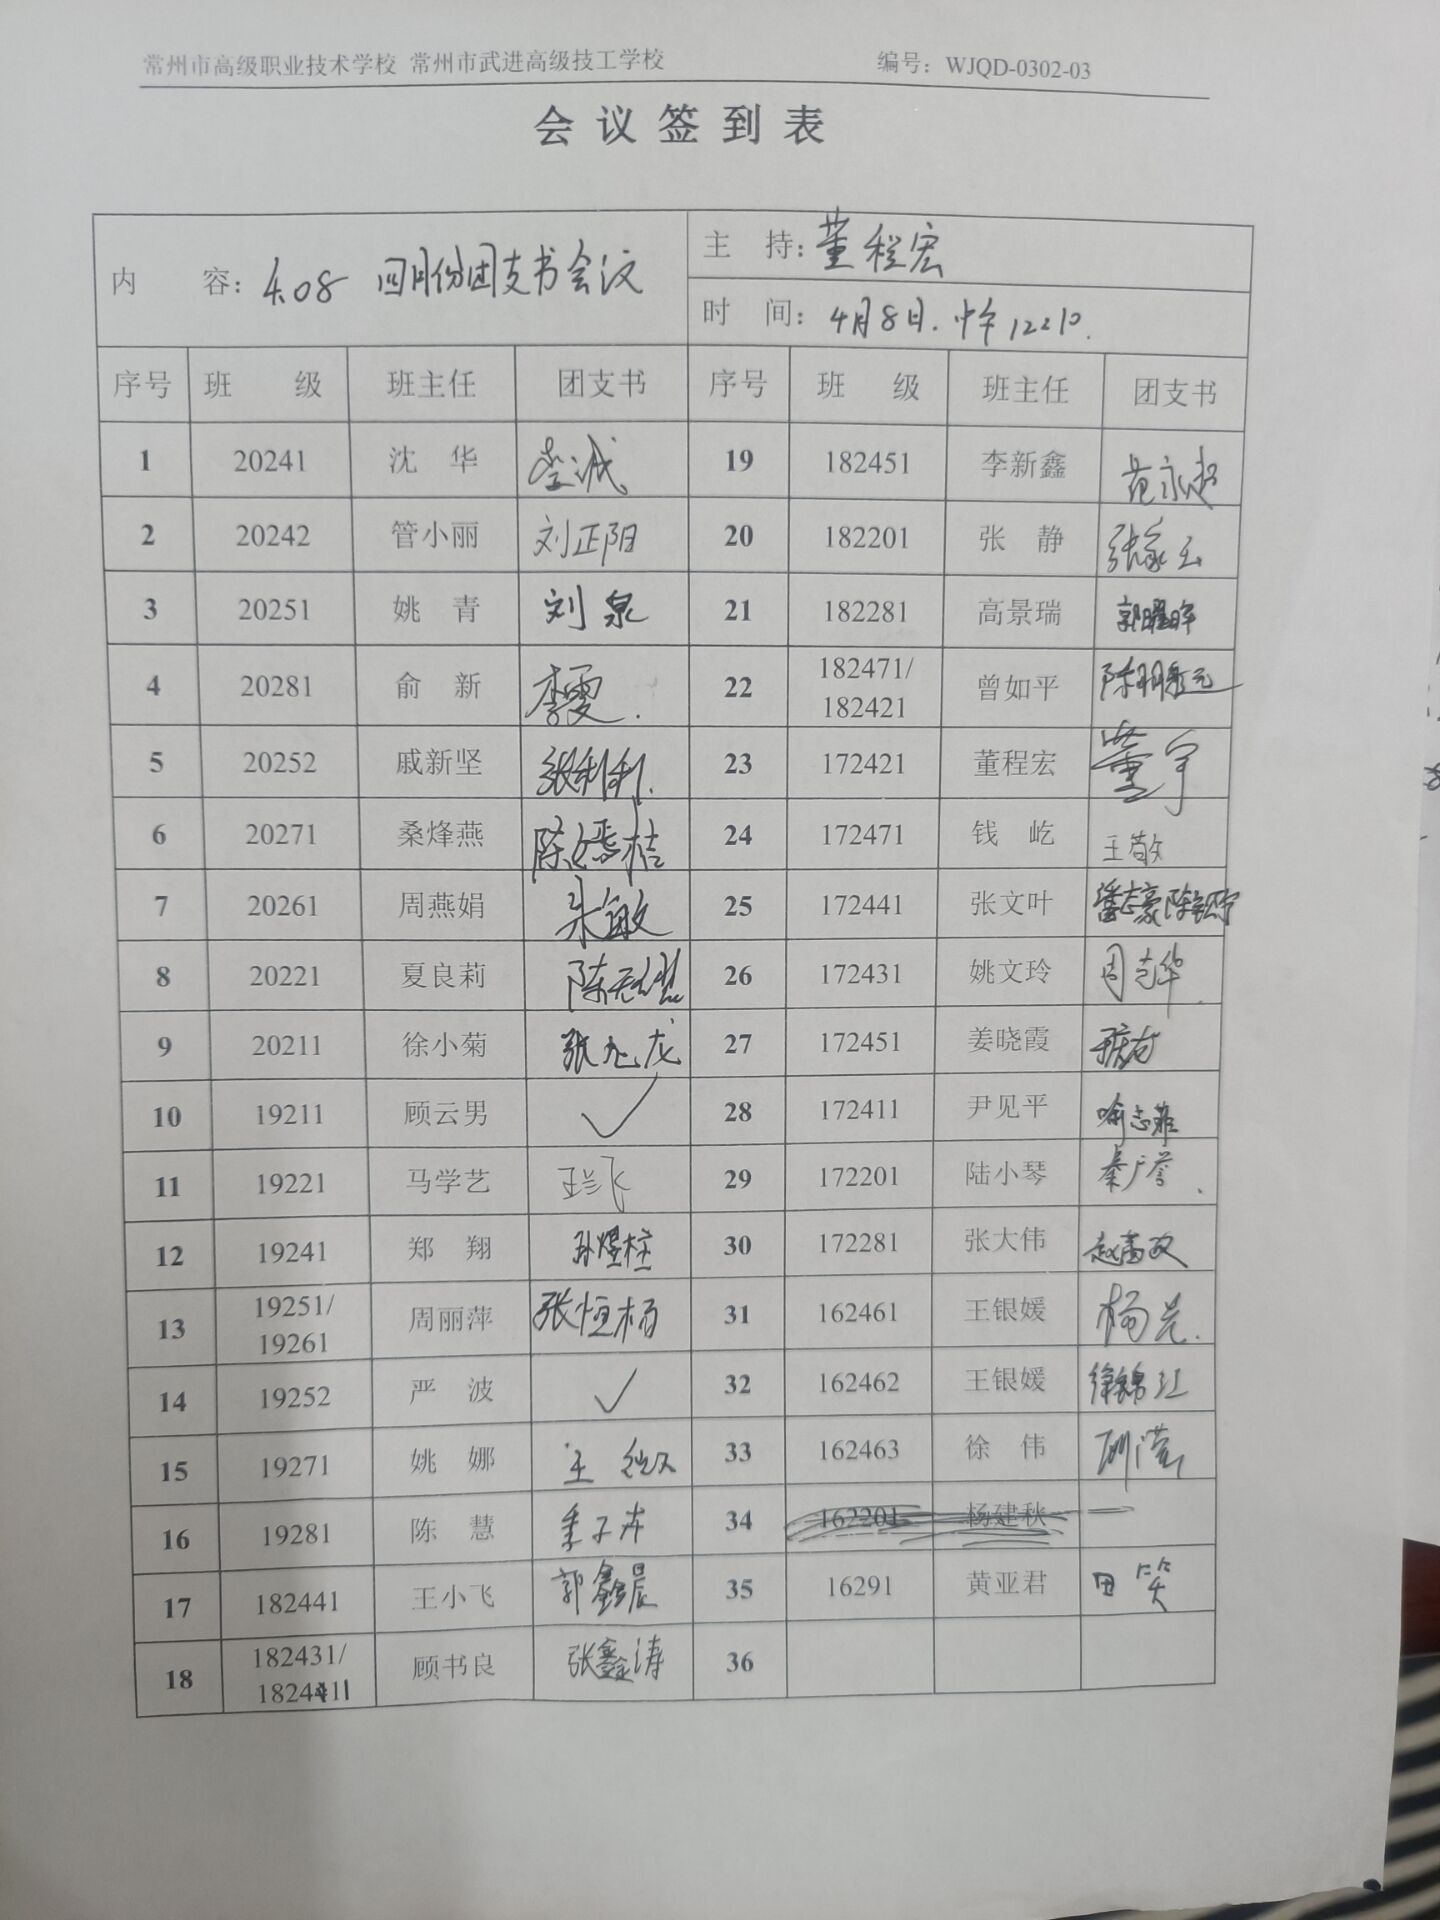 常州市高级职业技术学校 常州市武进高级技工学校 编号：WJQD-0302-03
会议签到表
内 容：4.08 四月份团支书会议
主 持：董程宏
时 间：4月8日.中午12:10.
序号 班 级 班主任 团支书 序号 班 级 班主任 团支书
1 20241 沈 华 19 182451 李新鑫 范永超
2 20242 管小丽 刘正阳 20 182201 张 静 张家玉
3 20251 姚 青 刘泉 21 182281 高景瑞
4 20281 俞 新 李雯. 22 182471/182421 曾如平
5 20252 戚新坚 张利利. 23 172421 董程宏 董宇
6 20271 桑烽燕 陈嫣桔 24 172471 钱 屹 王敬
7 20261 周燕娟 朱敏 25 172441 张文叶
8 20221 夏良莉 26 172431 姚文玲 周志华.
9 20211 徐小菊 张旭龙 27 172451 姜晓霞
10 19211 顾云男 ✓ 28 172411 尹见平 喻志菲
11 19221 马学艺 29 172201 陆小琴 秦广誉.
12 19241 郑 翔 孙煜柱 30 172281 张大伟
13 19251/19261 周丽萍 张恒杨 31 162461 王银媛
14 19252 严 波 ✓ 32 162462 王银媛 徐锦江
15 19271 姚 娜 33 162463 徐 伟
16 19281 陈 慧 季子卉 34 162201 杨建秋
17 182441 王小飞 郭鑫晨 35 16291 黄亚君 田笑
18 182431/182411 顾书良 张鑫涛 36